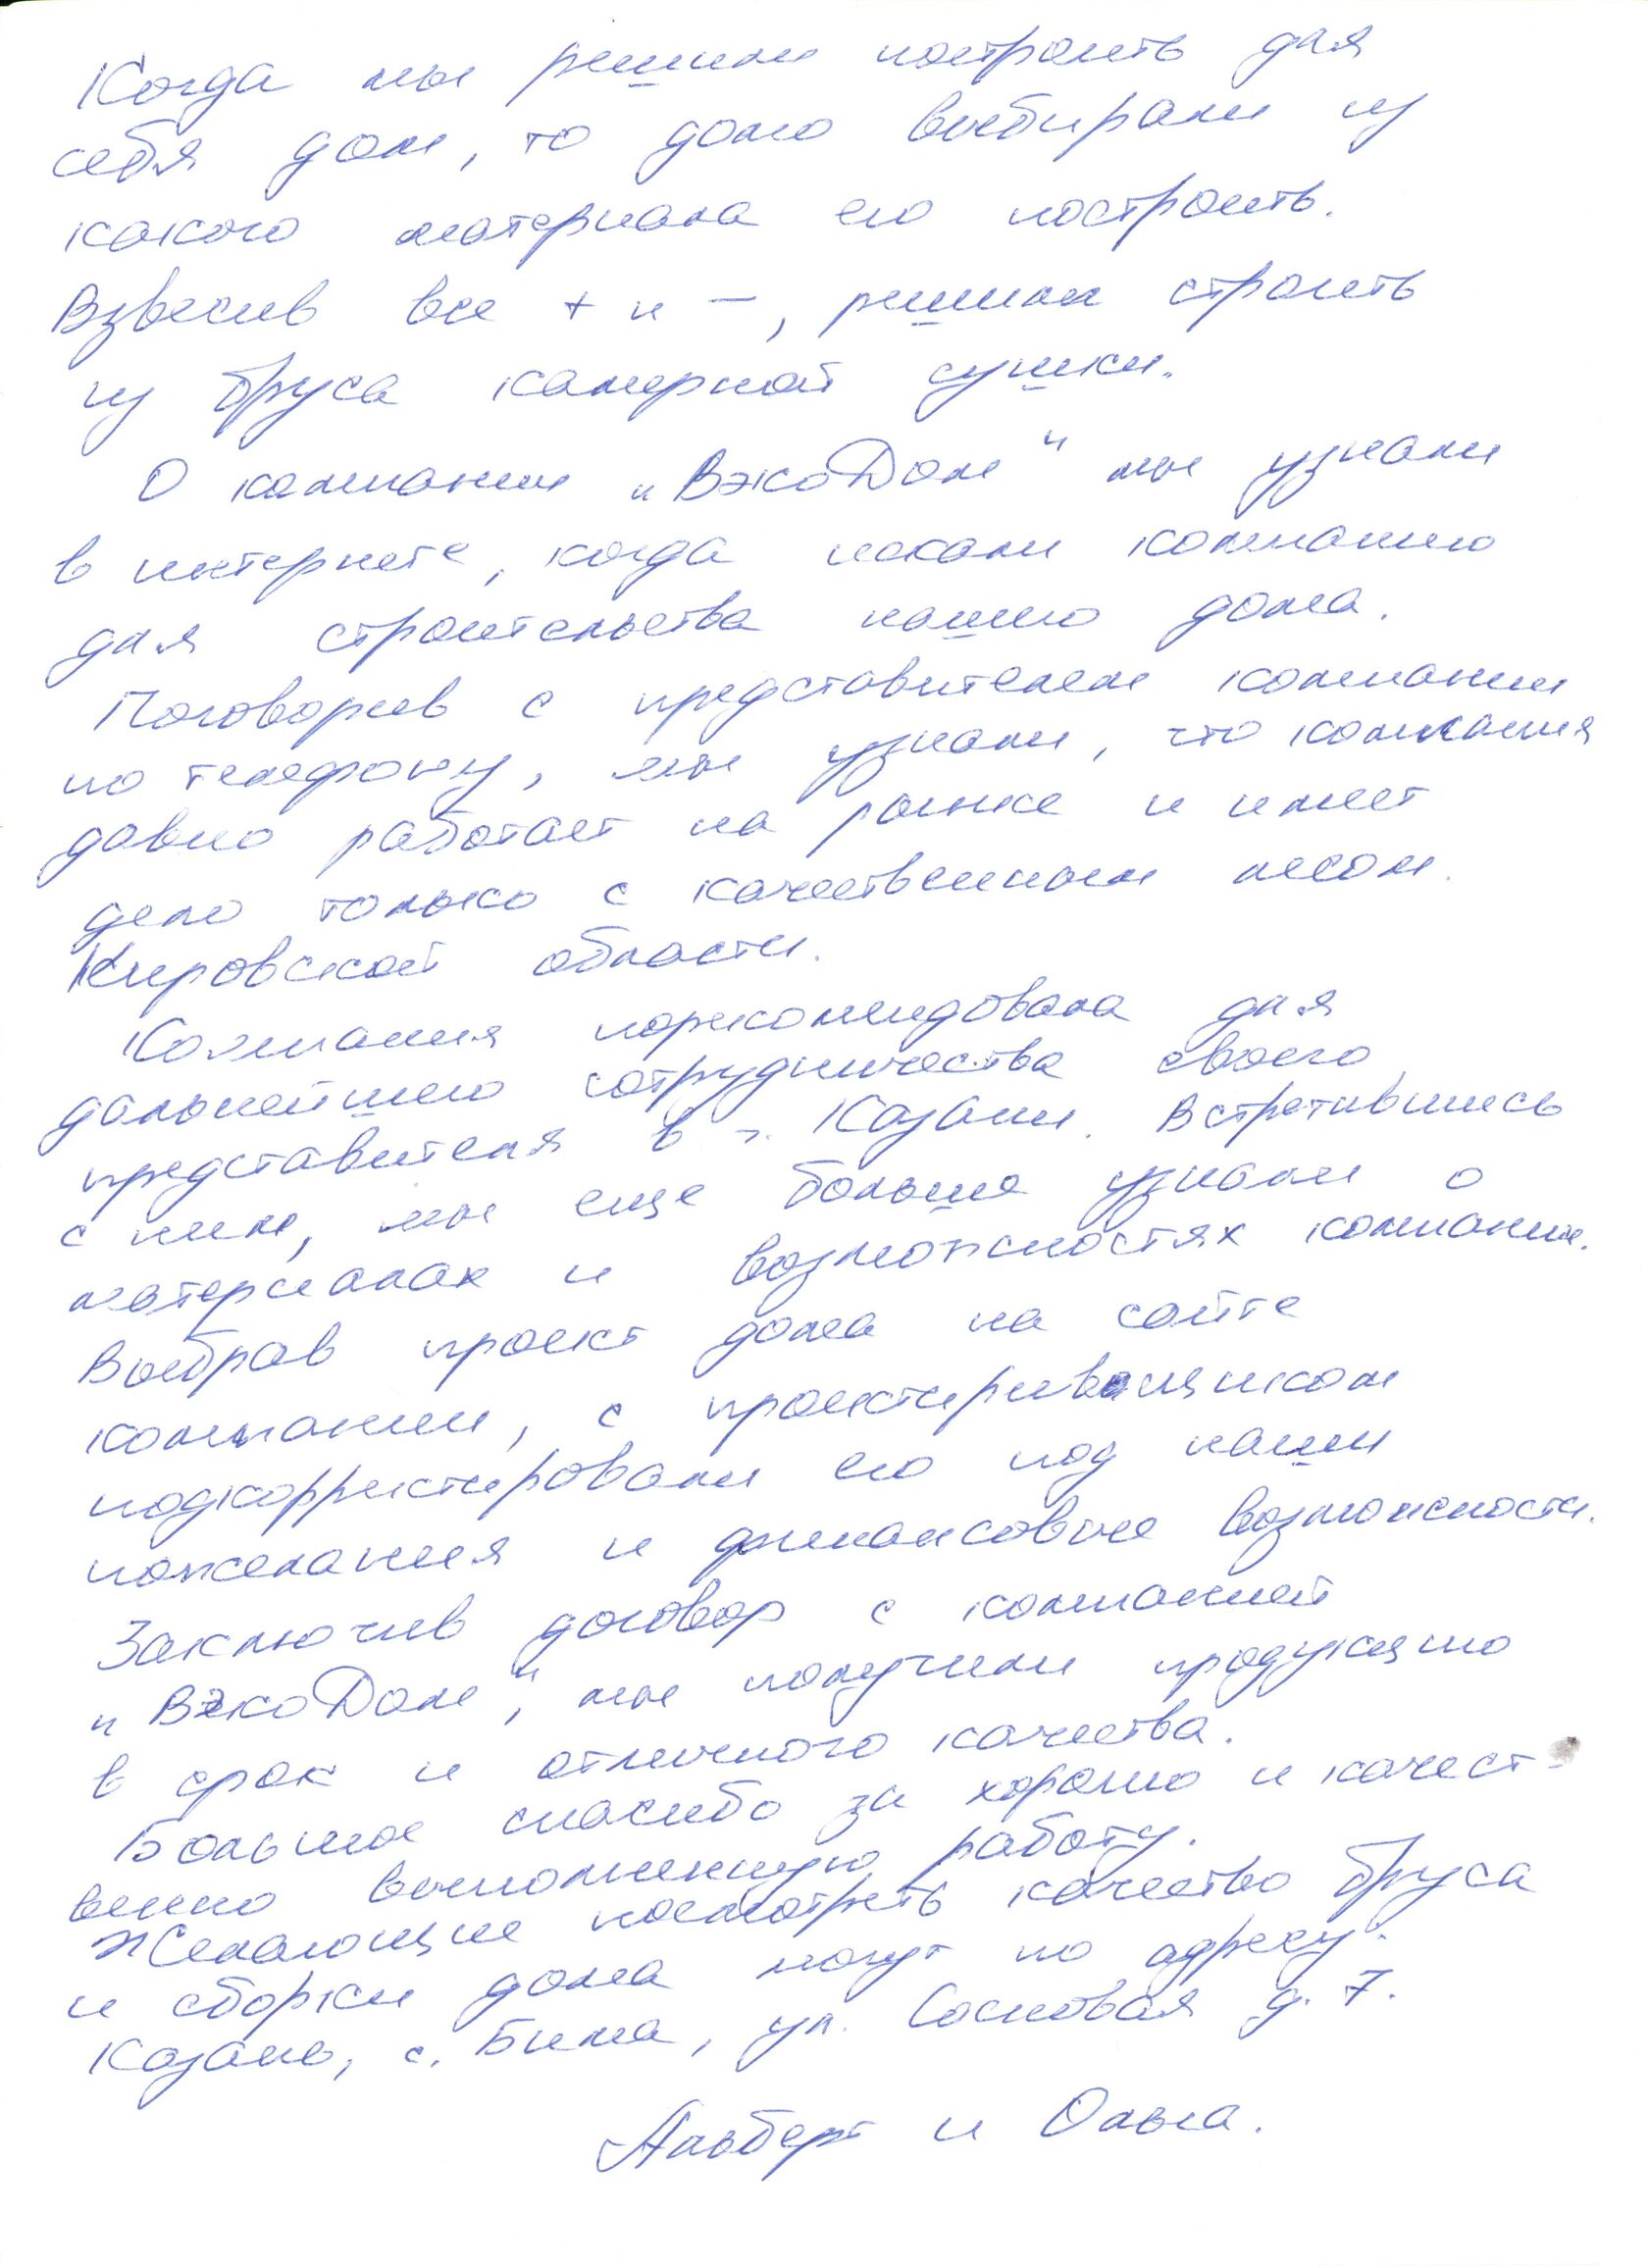 Когда мы решили построить для
себя дом, то долго выбирали из
какого материала его построить.
Взвесив все + и –, решили строить
из бруса камерной сушки.
О компании „ВэкоДом" мы узнали
в интернете, когда искали компанию
для строительства нашего дома.
Поговорив с представителем компании
по телефону, мы узнали, что компания
давно работает на рынке и имеет
дело только с качественным лесом
Кировской области.
Компания порекомендовала для
дальнейшего сотрудничества своего
представителя в г. Казани. Встретившись
с ним, мы еще больше узнали о
материалах и возможностях компании.
Выбрав проект дома на сайте
компании, с проектировщиком
подкорректировали его под наши
пожелания и финансовые возможности.
Заключив договор с компанией
„ВэкоДом", мы получили продукцию
в срок и отличного качества.
Большое спасибо за хорошо и качест-
венно выполненную работу.
Желающие посмотреть качество бруса
и сборки дома могут по адресу:
Казань, с. Бима, ул. Сосновая д. 7.
Альберт и Ольга.